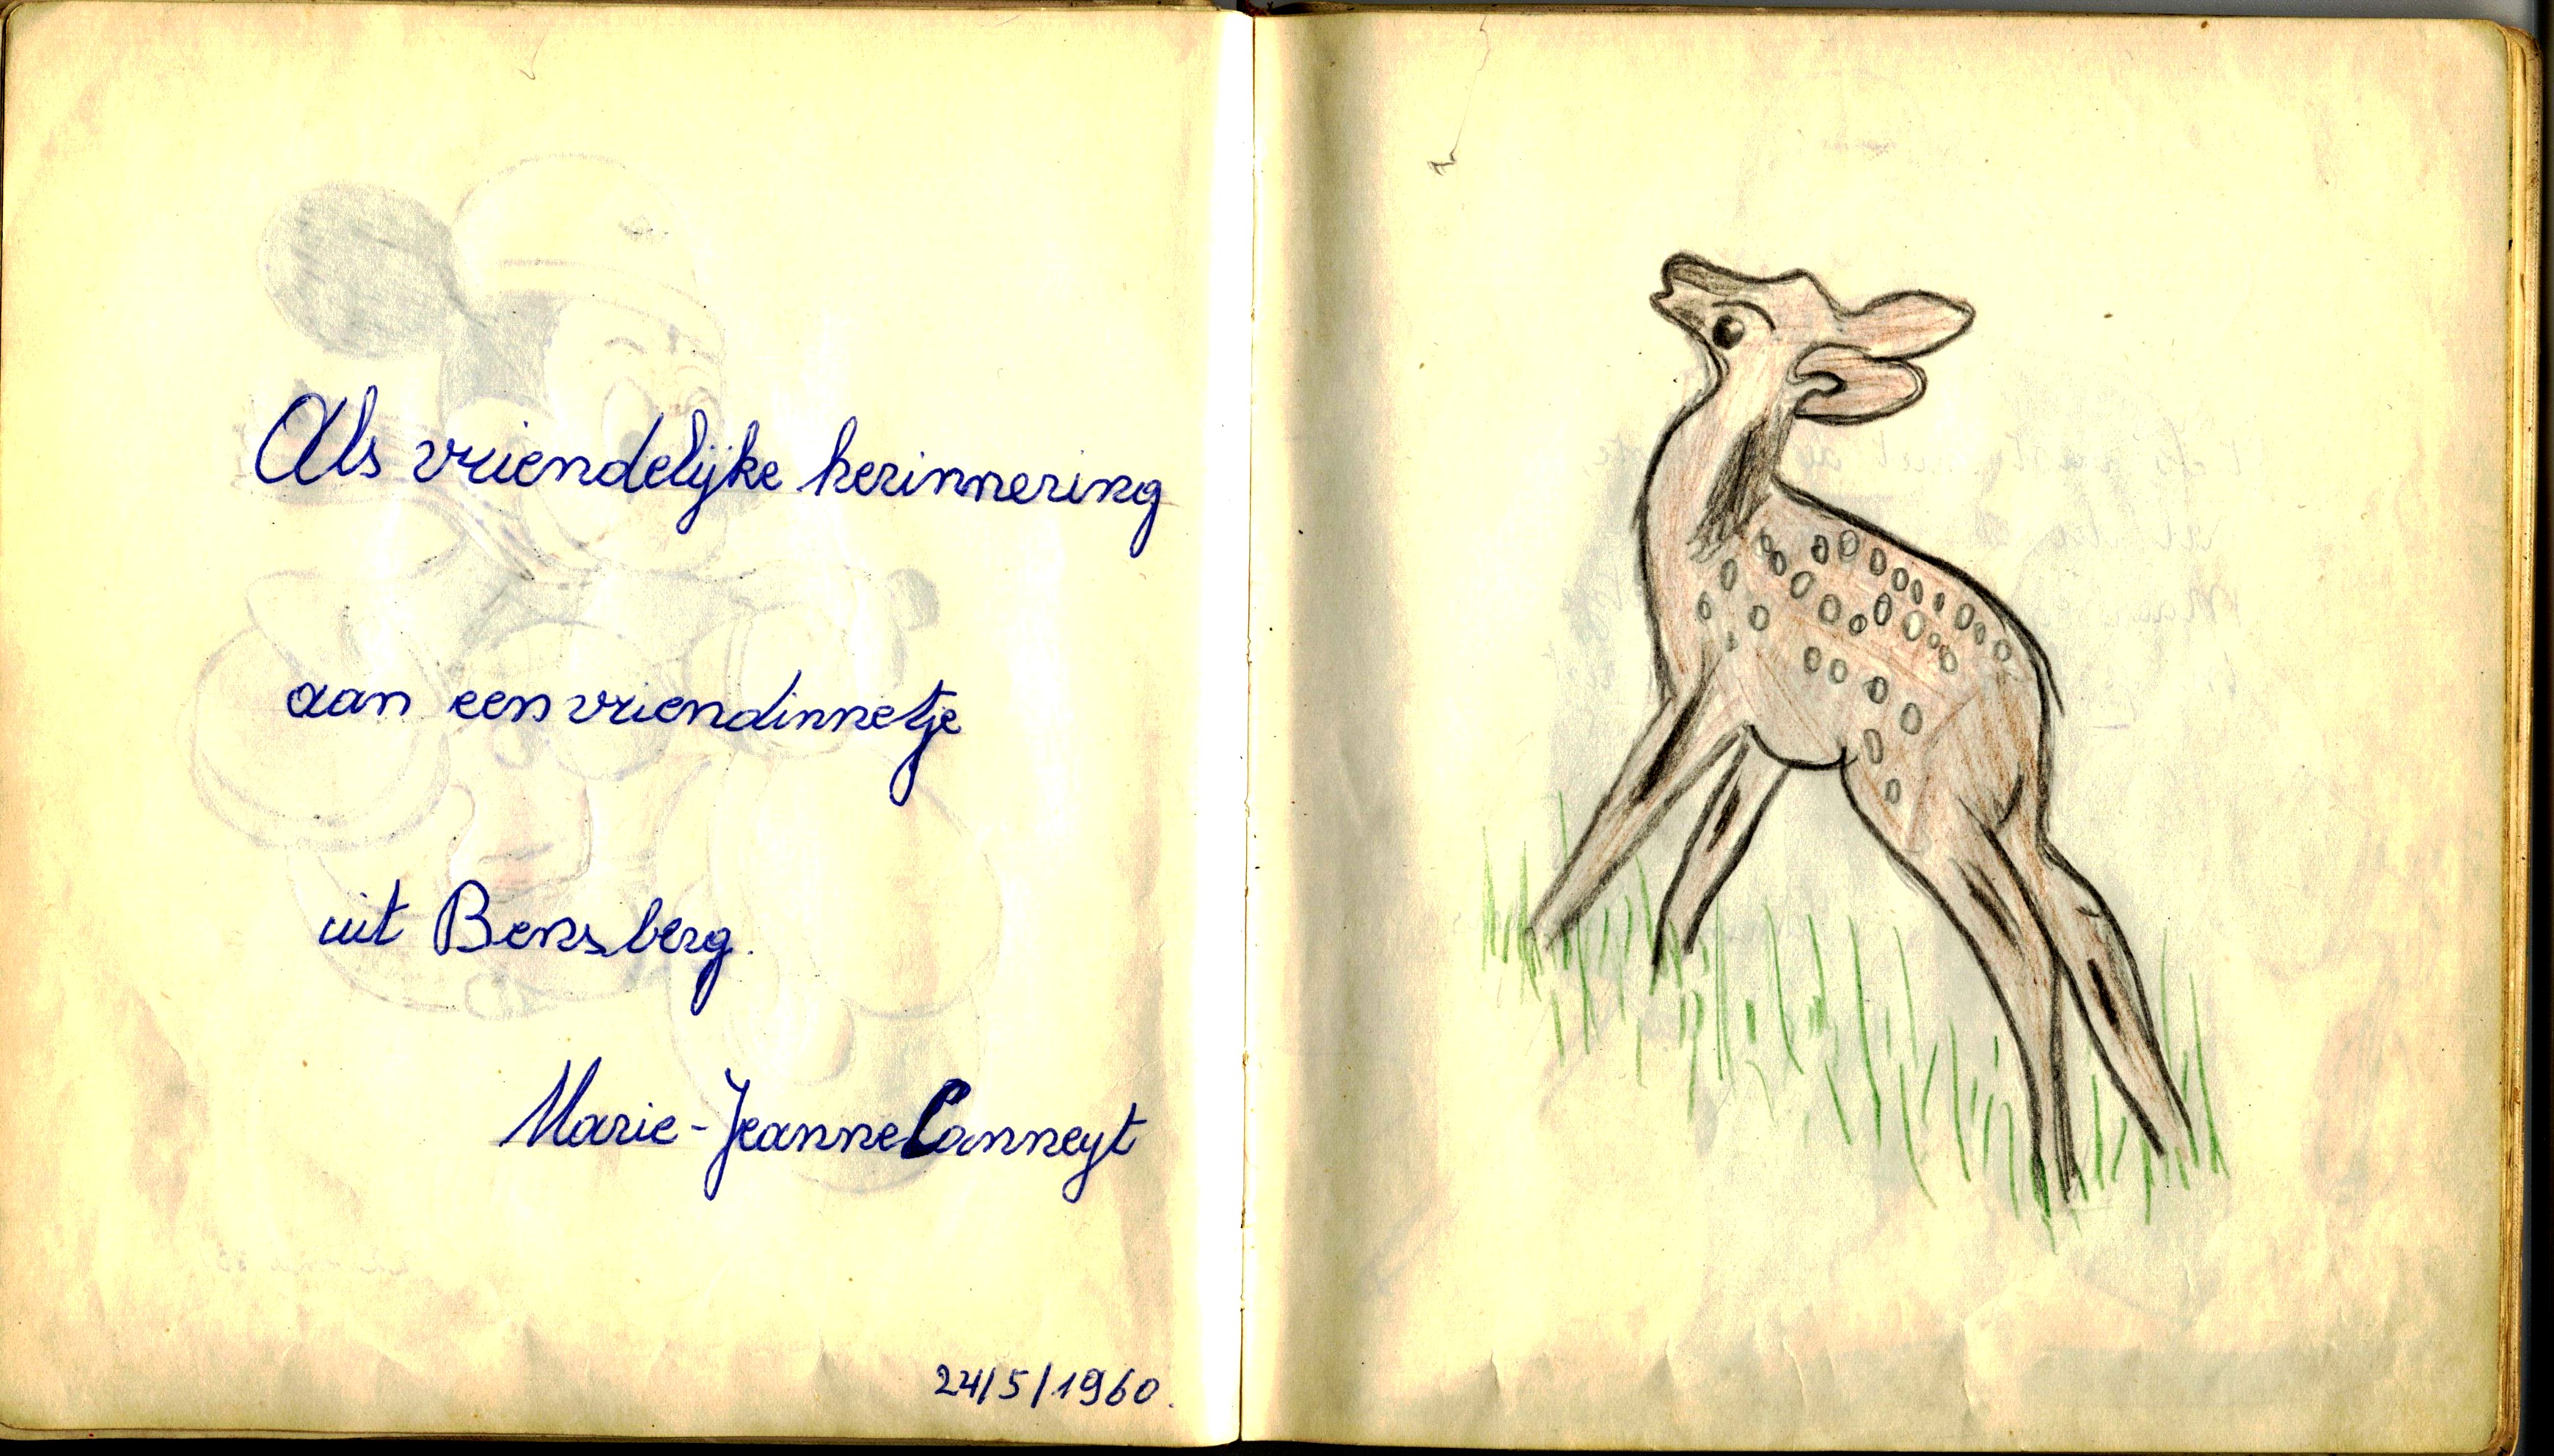 Als vriendelijke herinnering
aan een vriendinnetje
uit Bensberg.
Marie-Jeanne Canneyt
24/5/1960.